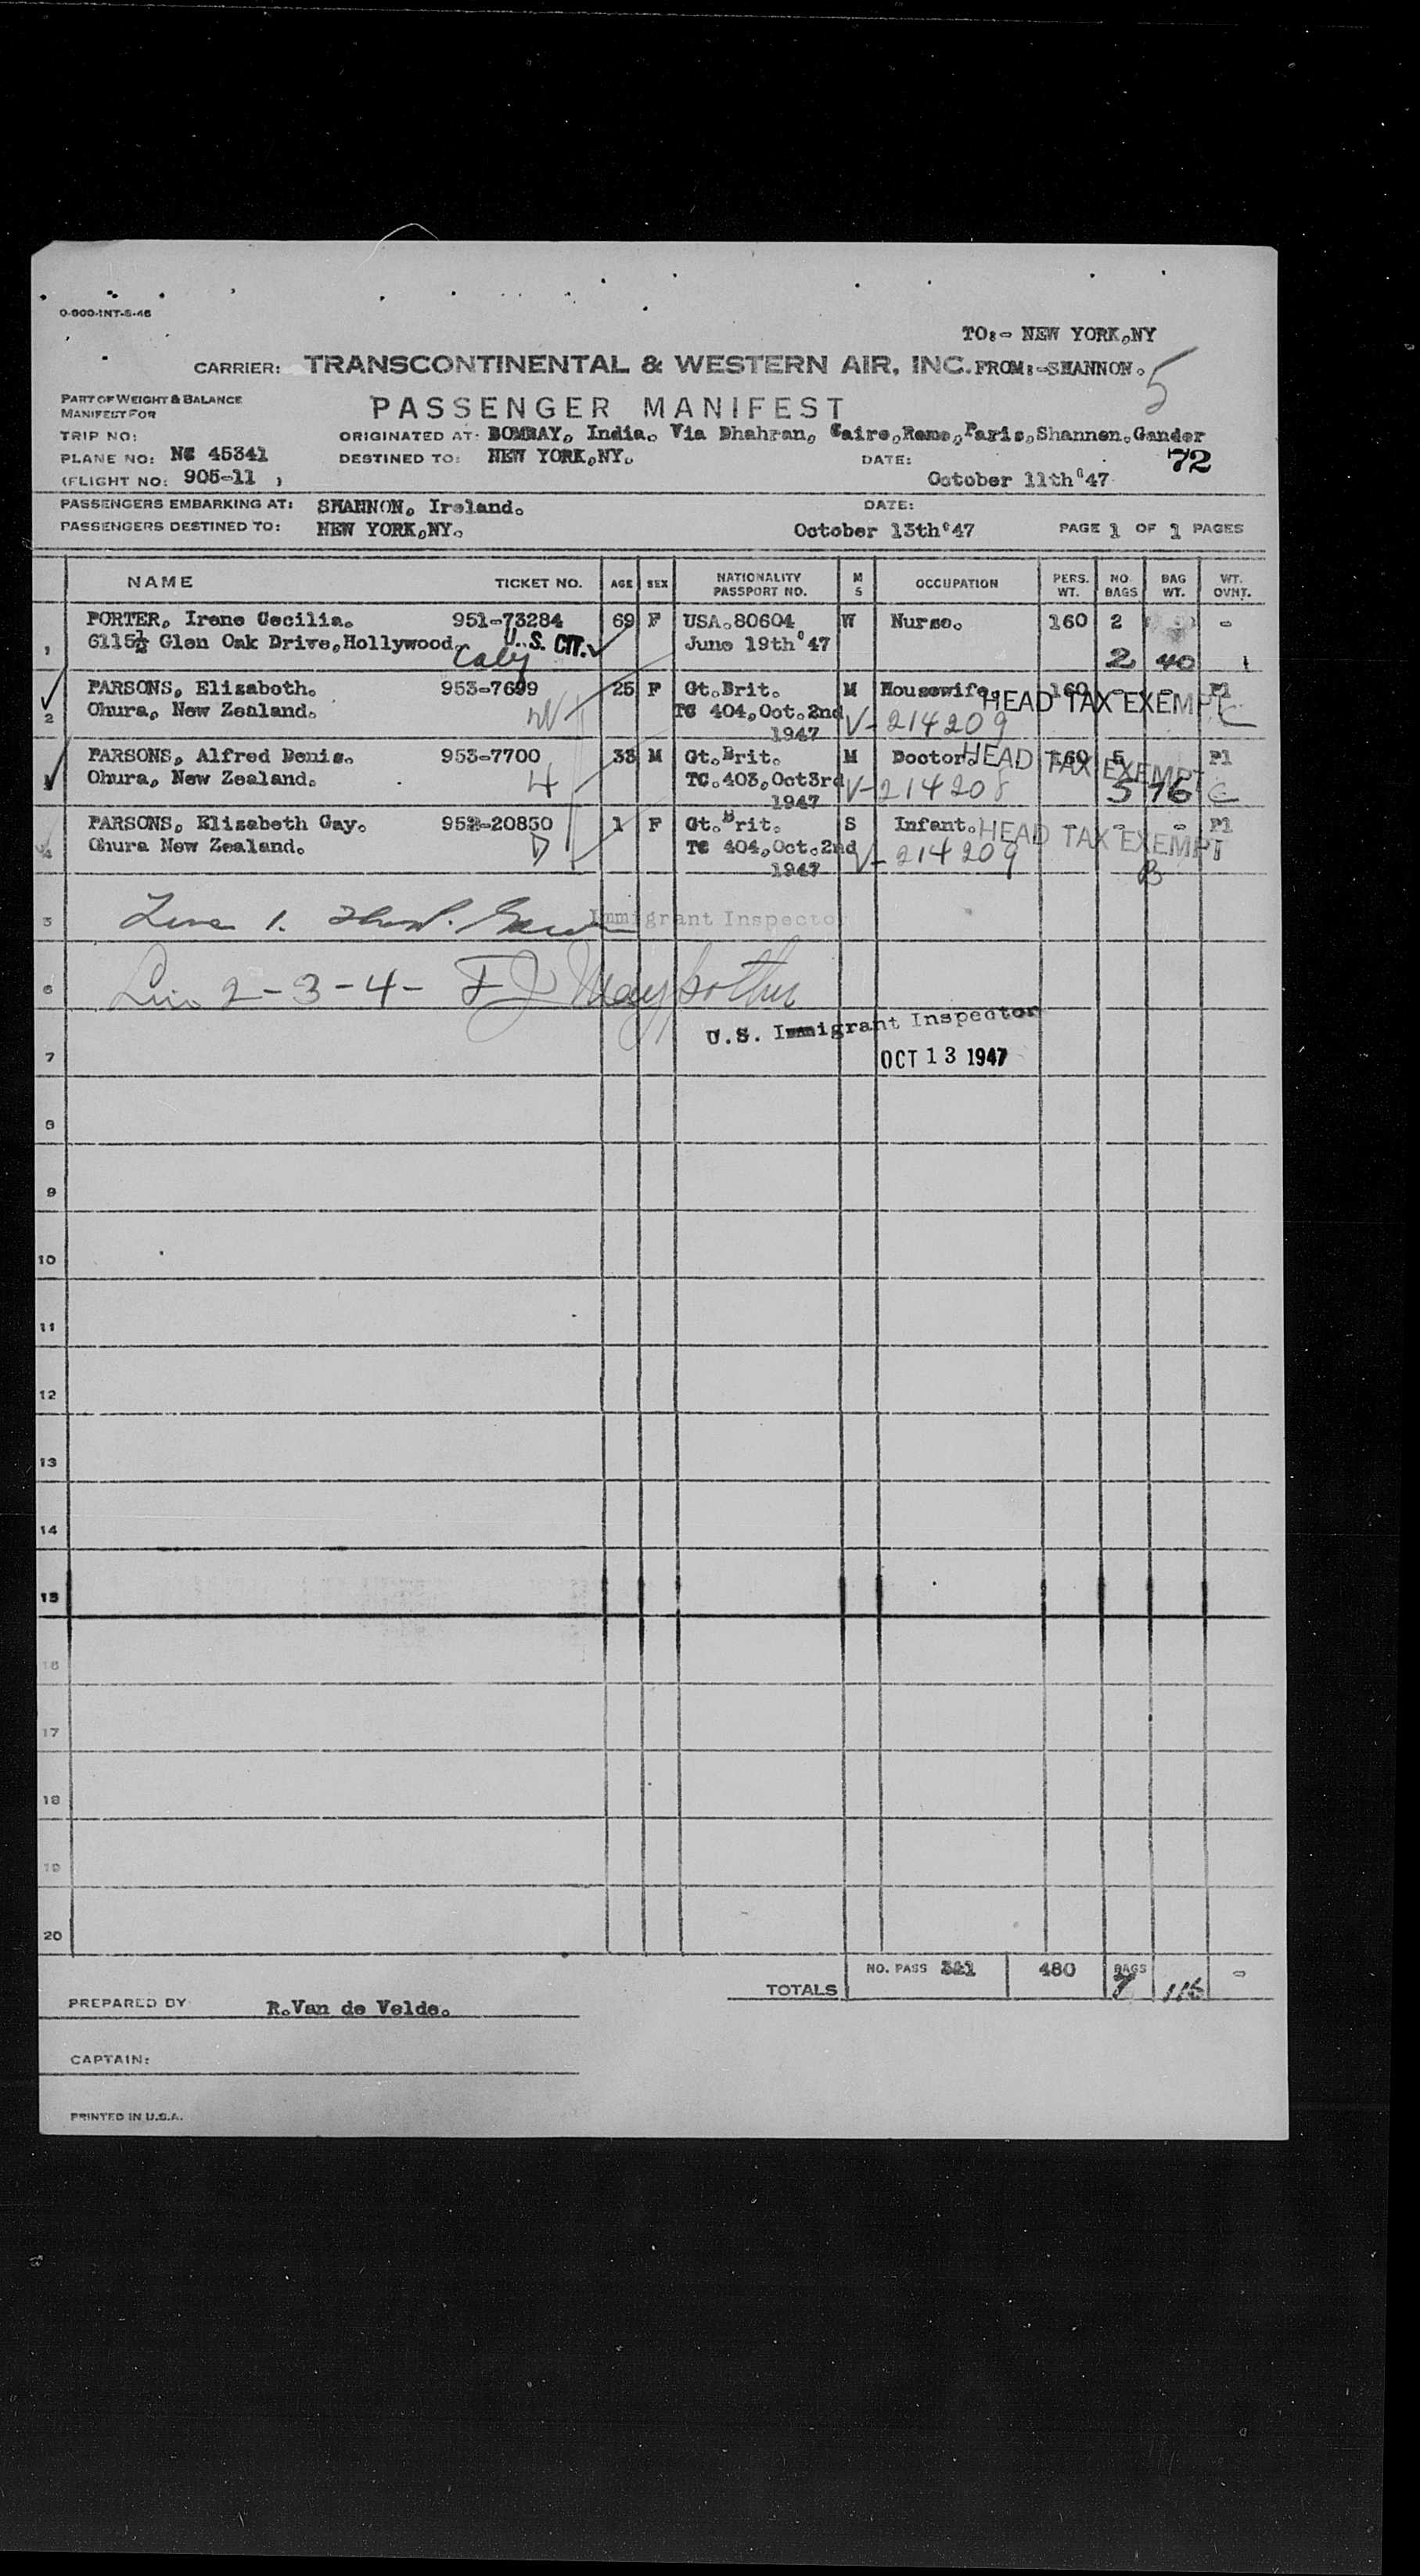 O-900-INT-8-46
TO:- NEW YORK,NY
CARRIER: TRANSCONTINENTAL & WESTERN AIR, INC. FROM:-SHANNON.
5
PART OF WEIGHT & BALANCE
MANIFEST FOR
PASSENGER MANIFEST
TRIP NO: ORIGINATED AT: BOMBAY, India. Via Dhahran, Cairo,Rome,Paris,Shannon,Gander
PLANE NO: NC 45341 DESTINED TO: NEW YORK,NY. DATE: 72
(FLIGHT NO: 905-11 ) October 11th'47
PASSENGERS EMBARKING AT: SHANNON, Ireland. DATE:
PASSENGERS DESTINED TO: NEW YORK,NY. October 13th'47 PAGE 1 OF 1 PAGES
NAME TICKET NO. AGE SEX NATIONALITY PASSPORT NO. M S OCCUPATION PERS. WT. NO. BAGS BAG WT. WT. OVNT.
1 PORTER, Irene Cecilia. 951-73284 69 F USA.80604 W Nurse. 160 2 -
6115½ Glen Oak Drive,Hollywood. U.S. CIT. June 19th'47
Calif 2 40 1
2 PARSONS, Elizabeth. 953-7699 25 F Gt.Brit. M Housewife. 160 - - Pl
HEAD TAX EXEMPT
Ohura, New Zealand. W TC 404,Oct.2nd V-214209 C
1947
PARSONS, Alfred Denis. 953-7700 33 M Gt.Brit. M Doctor. 160 5 Pl
HEAD TAX EXEMPT
Ohura, New Zealand. H TC.403,Oct3rd V-214208 5 76 C
1947
4 PARSONS, Elizabeth Gay. 952-20850 1 F Gt.Brit. S Infant. - - - Pl
HEAD TAX EXEMPT
Ohura New Zealand. D TC 404,Oct.2nd V-214209
1947 B
5 Line 1. Immigrant Inspector
6 Line 2-3-4- F J
U.S. Immigrant Inspector
7 OCT 13 1947
8
9
10
11
12
13
14
15
16
17
18
19
20
TOTALS NO. PASS 480 BAGS 7 116 -
PREPARED BY R.Van de Velde.
CAPTAIN:
PRINTED IN U.S.A.